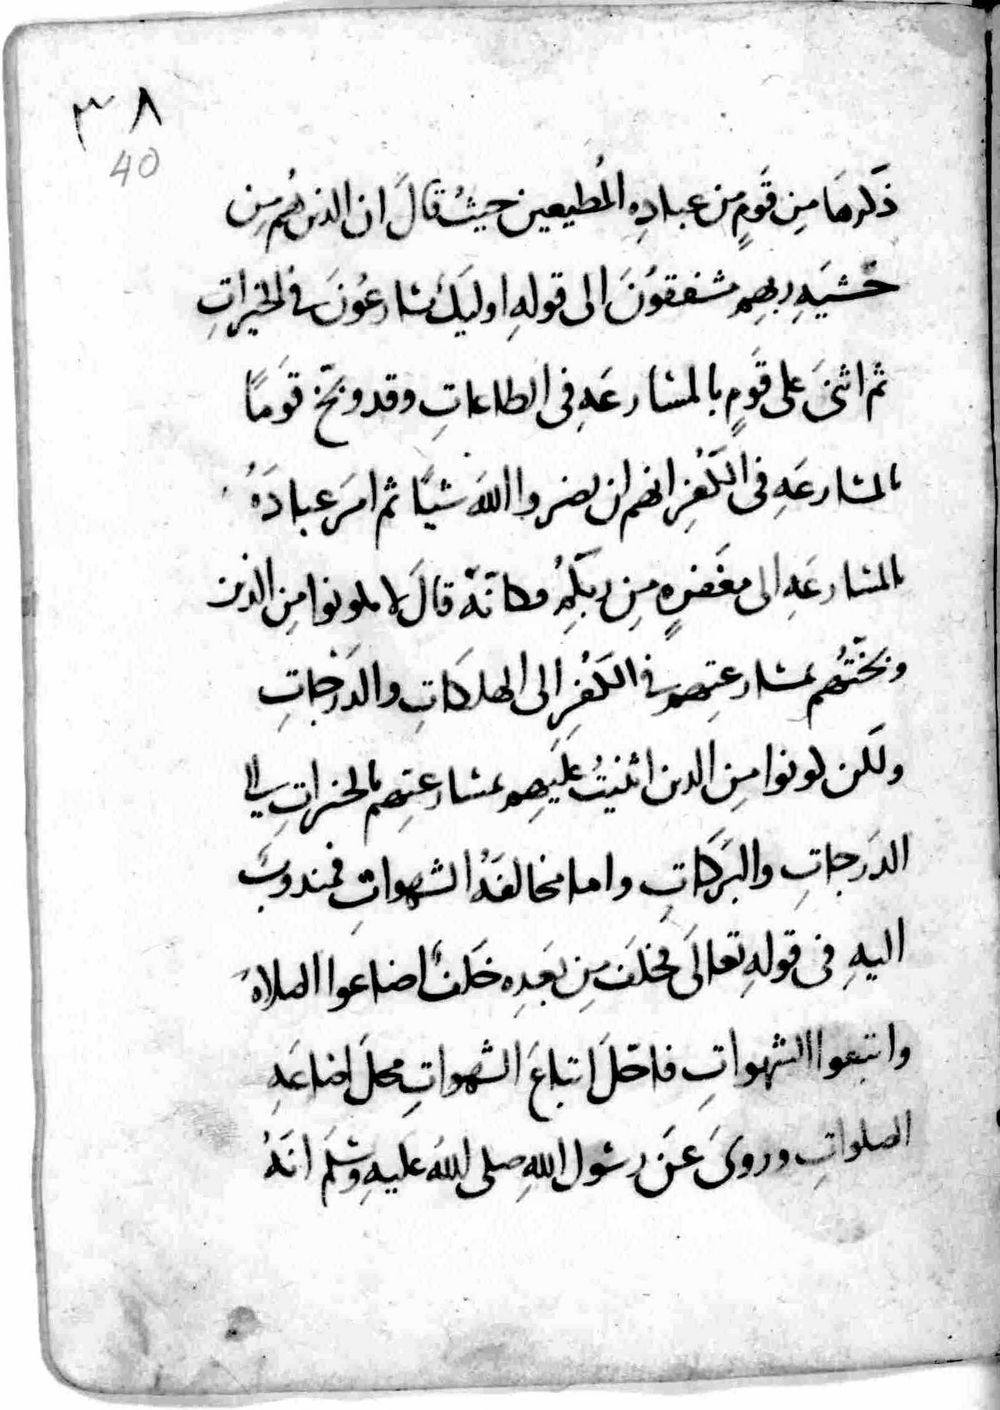 ٣٨
40
ذكرها مِن قَومٍ من عبادِه المُطيعين حيثُ قالَ ان الذين هُم مِن
خشيَهِ ربهِم مشفقونَ الى قولهِ اوليَك يسارعُونَ في الخيراتِ
ثم اثنىَ على قَومٍ بالمسارعَهِ فى الطاعاتِ وقد وبّخ قَومًا
بالمسارعَهِ فى الكفْرِ انهم لن يضروا اللهَ شيًا ثم امَر عبادَهُ
بالمسارعَهِ الى مغَفرهٍ مِن ربكِمُ وكانَّهُ قالَ لا تكونوا مِن الذين
وبخَّتُهُم بمسارعتِهِم في الكَفُرِ الى الهلكَاتِ والدَرَجاتِ
ولَكن كونوا مِن الذين اثنيتُ عليَهِم بمسارعتِهِم بالخيراتِ الى
الدَرجاتِ والبَركَاتِ واما مخالفَهُ الشهواتِ فمندوبٌ
اليهِ فى قولهِ تعالَى فخلَفَ مِن بَعدِهم خَلفٌ اضاعوا الصلاهَ
واتبعوا الشهواتِ فاحَلَ اتباعَ الشهواتِ محلَ اضاعَهِ
الصلواتِ وروىَ عَن رسُول اللهِ صلى اللهُ عليهِ وسَلمَ انهُ